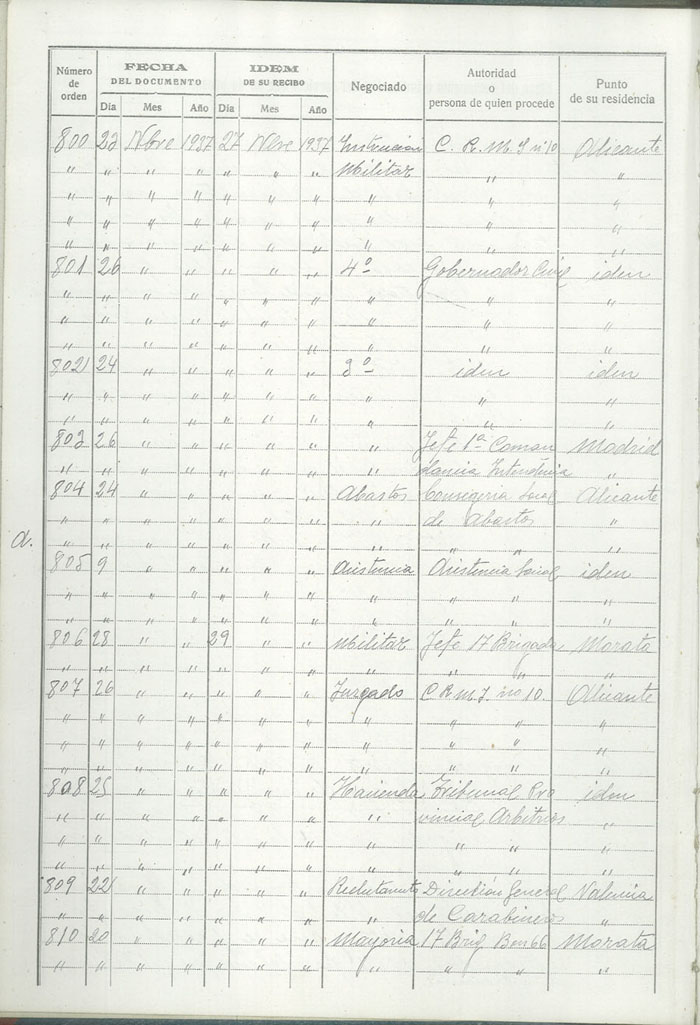 Número de orden | FECHA DEL DOCUMENTO | IDEM DE SU RECIBO | Negociado | Autoridad o persona de quien procede | Punto de su residencia
Día Mes Año Día Mes Año
800 23 Nbre 1937 27 Nbre 1937 Instrucción C. R. M. I nº 10 Alicante
" " " " " " " Militar " "
" " " " " " " " " "
" " " " " " " " " "
" " " " " " " " " "
801 26 " " " " " 4º Gobernador Civil iden
" " " " " " " " " "
" " " " " " " " " "
" " " " " " " " " "
802 24 " " " " " 3º iden iden
" " " " " " " " " "
" " " " " " " " " "
803 26 " " " " " " Jefe 1ª Coman Madrid
" " " " " " " " dancia Intendencia "
804 24 " " " " " Abastos Consegeria Local Alicante
" " " " " " " " de Abastos "
a.
" " " " " " " " " " "
805 9 " " " " " Asistencia Asistencia Social iden
" " " " " " " " " " "
" " " " " " " " " " "
806 28 " " 29 " " Militar Jefe 17 Brigada Morata
" " " " " " " " " " "
807 26 " " " " " Juzgado C. R. M. I. nº 10. Alicante
" " " " " " " " " " "
" " " " " " " " " " "
" " " " " " " " " " "
808 25 " " " " " Hacienda Tribunal Pro iden
" " " " " " " " vincial Arbitrios "
" " " " " " " " " " "
" " " " " " " " " " "
809 22 " " " " " Reclutamto Dirección General Valencia
" " " " " " " " de Carabineros "
810 20 " " " " " Mayoria 17 Brig Bon 66 Morata
" " " " " " " " " " "